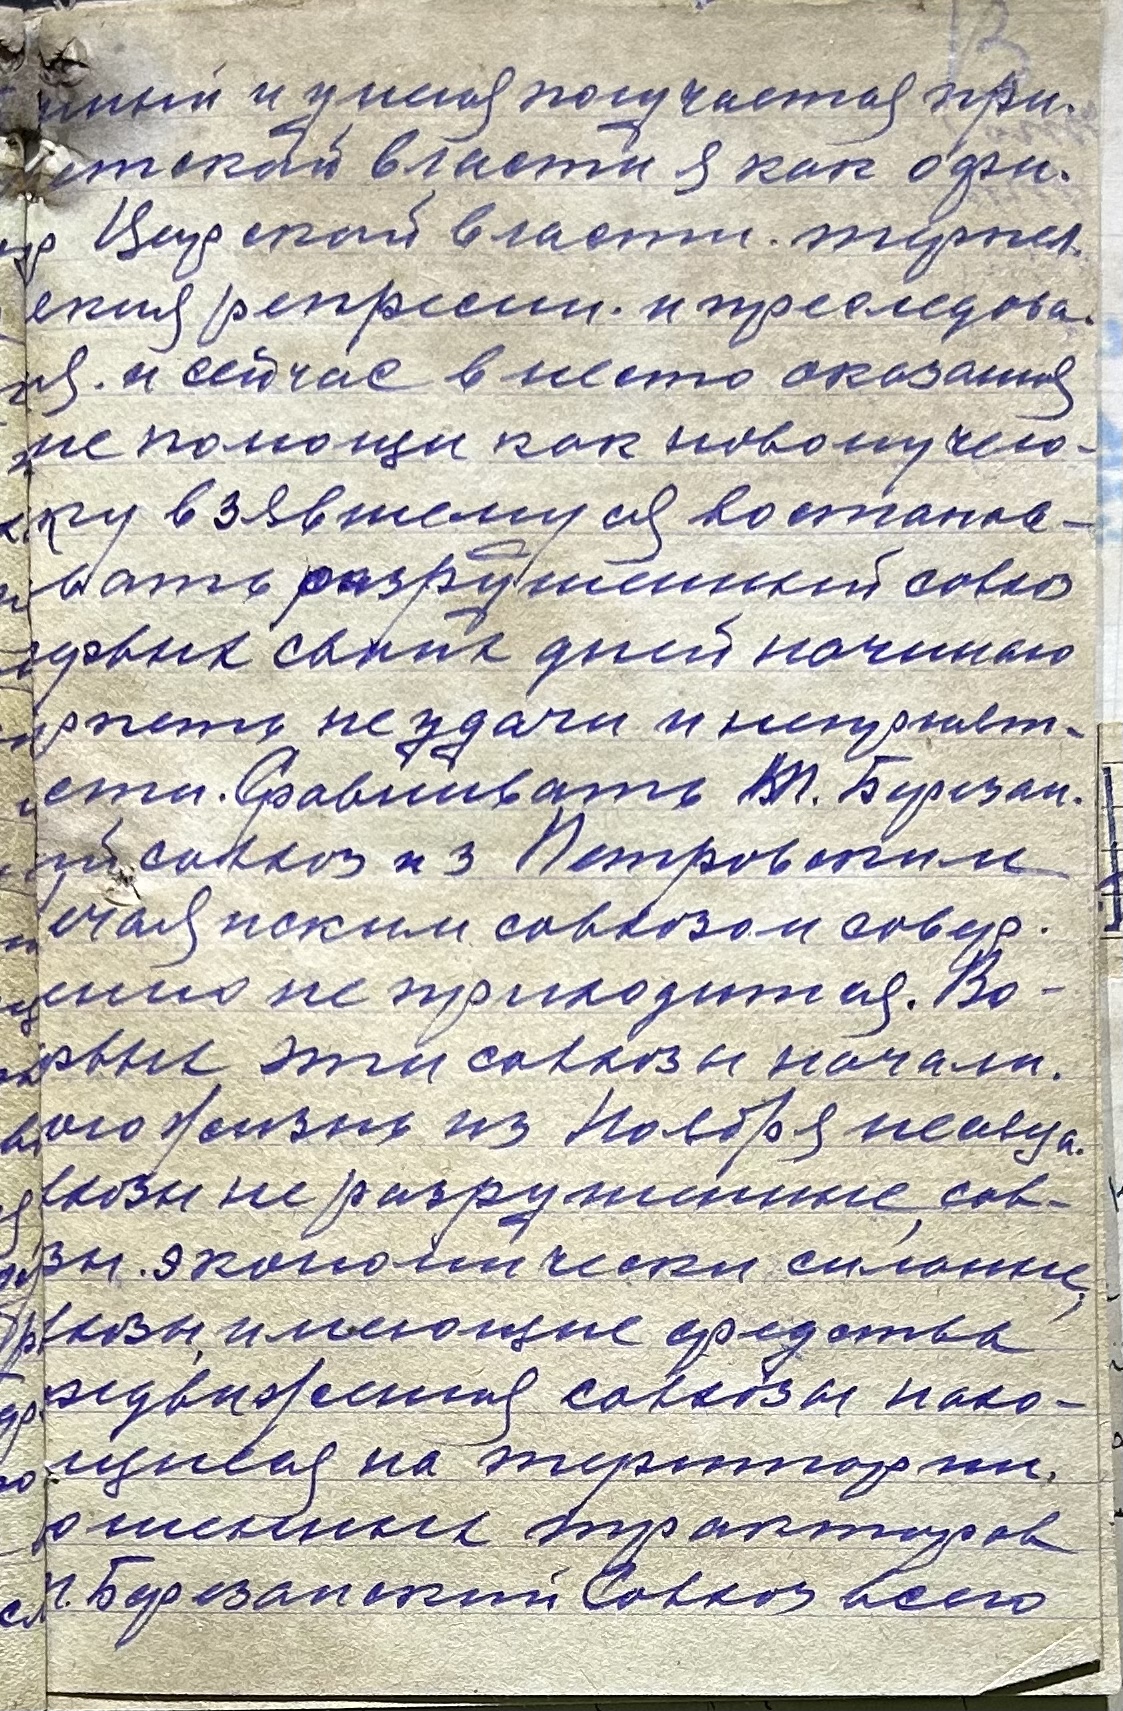 и у меня получается при.
етской власти я как офи.
Царской власти. терпел.
репрессии. и преследова.
ия. и сейчас вместо оказания
мне помощи как новому чело-
веку взявшемуся востана-
вливать разрушенный совхоз
первых своих дней начинаю
терпеть неудачи и неприят-
сти. Сравнивать М. Березан.
ий совхоз из Петровским
ечаянским совхозом совер.
енно не приходится. Во-
рвых эти совхозы начали.
жизнь из Ноября месяца.
вхозы не разрушенные, сов-
зы. экономически сильные,
вхозы, имеющие средства
редвижения совхозы нахо-
ящиеся на территории.
тракторов
М. Березанский Совхоз всего